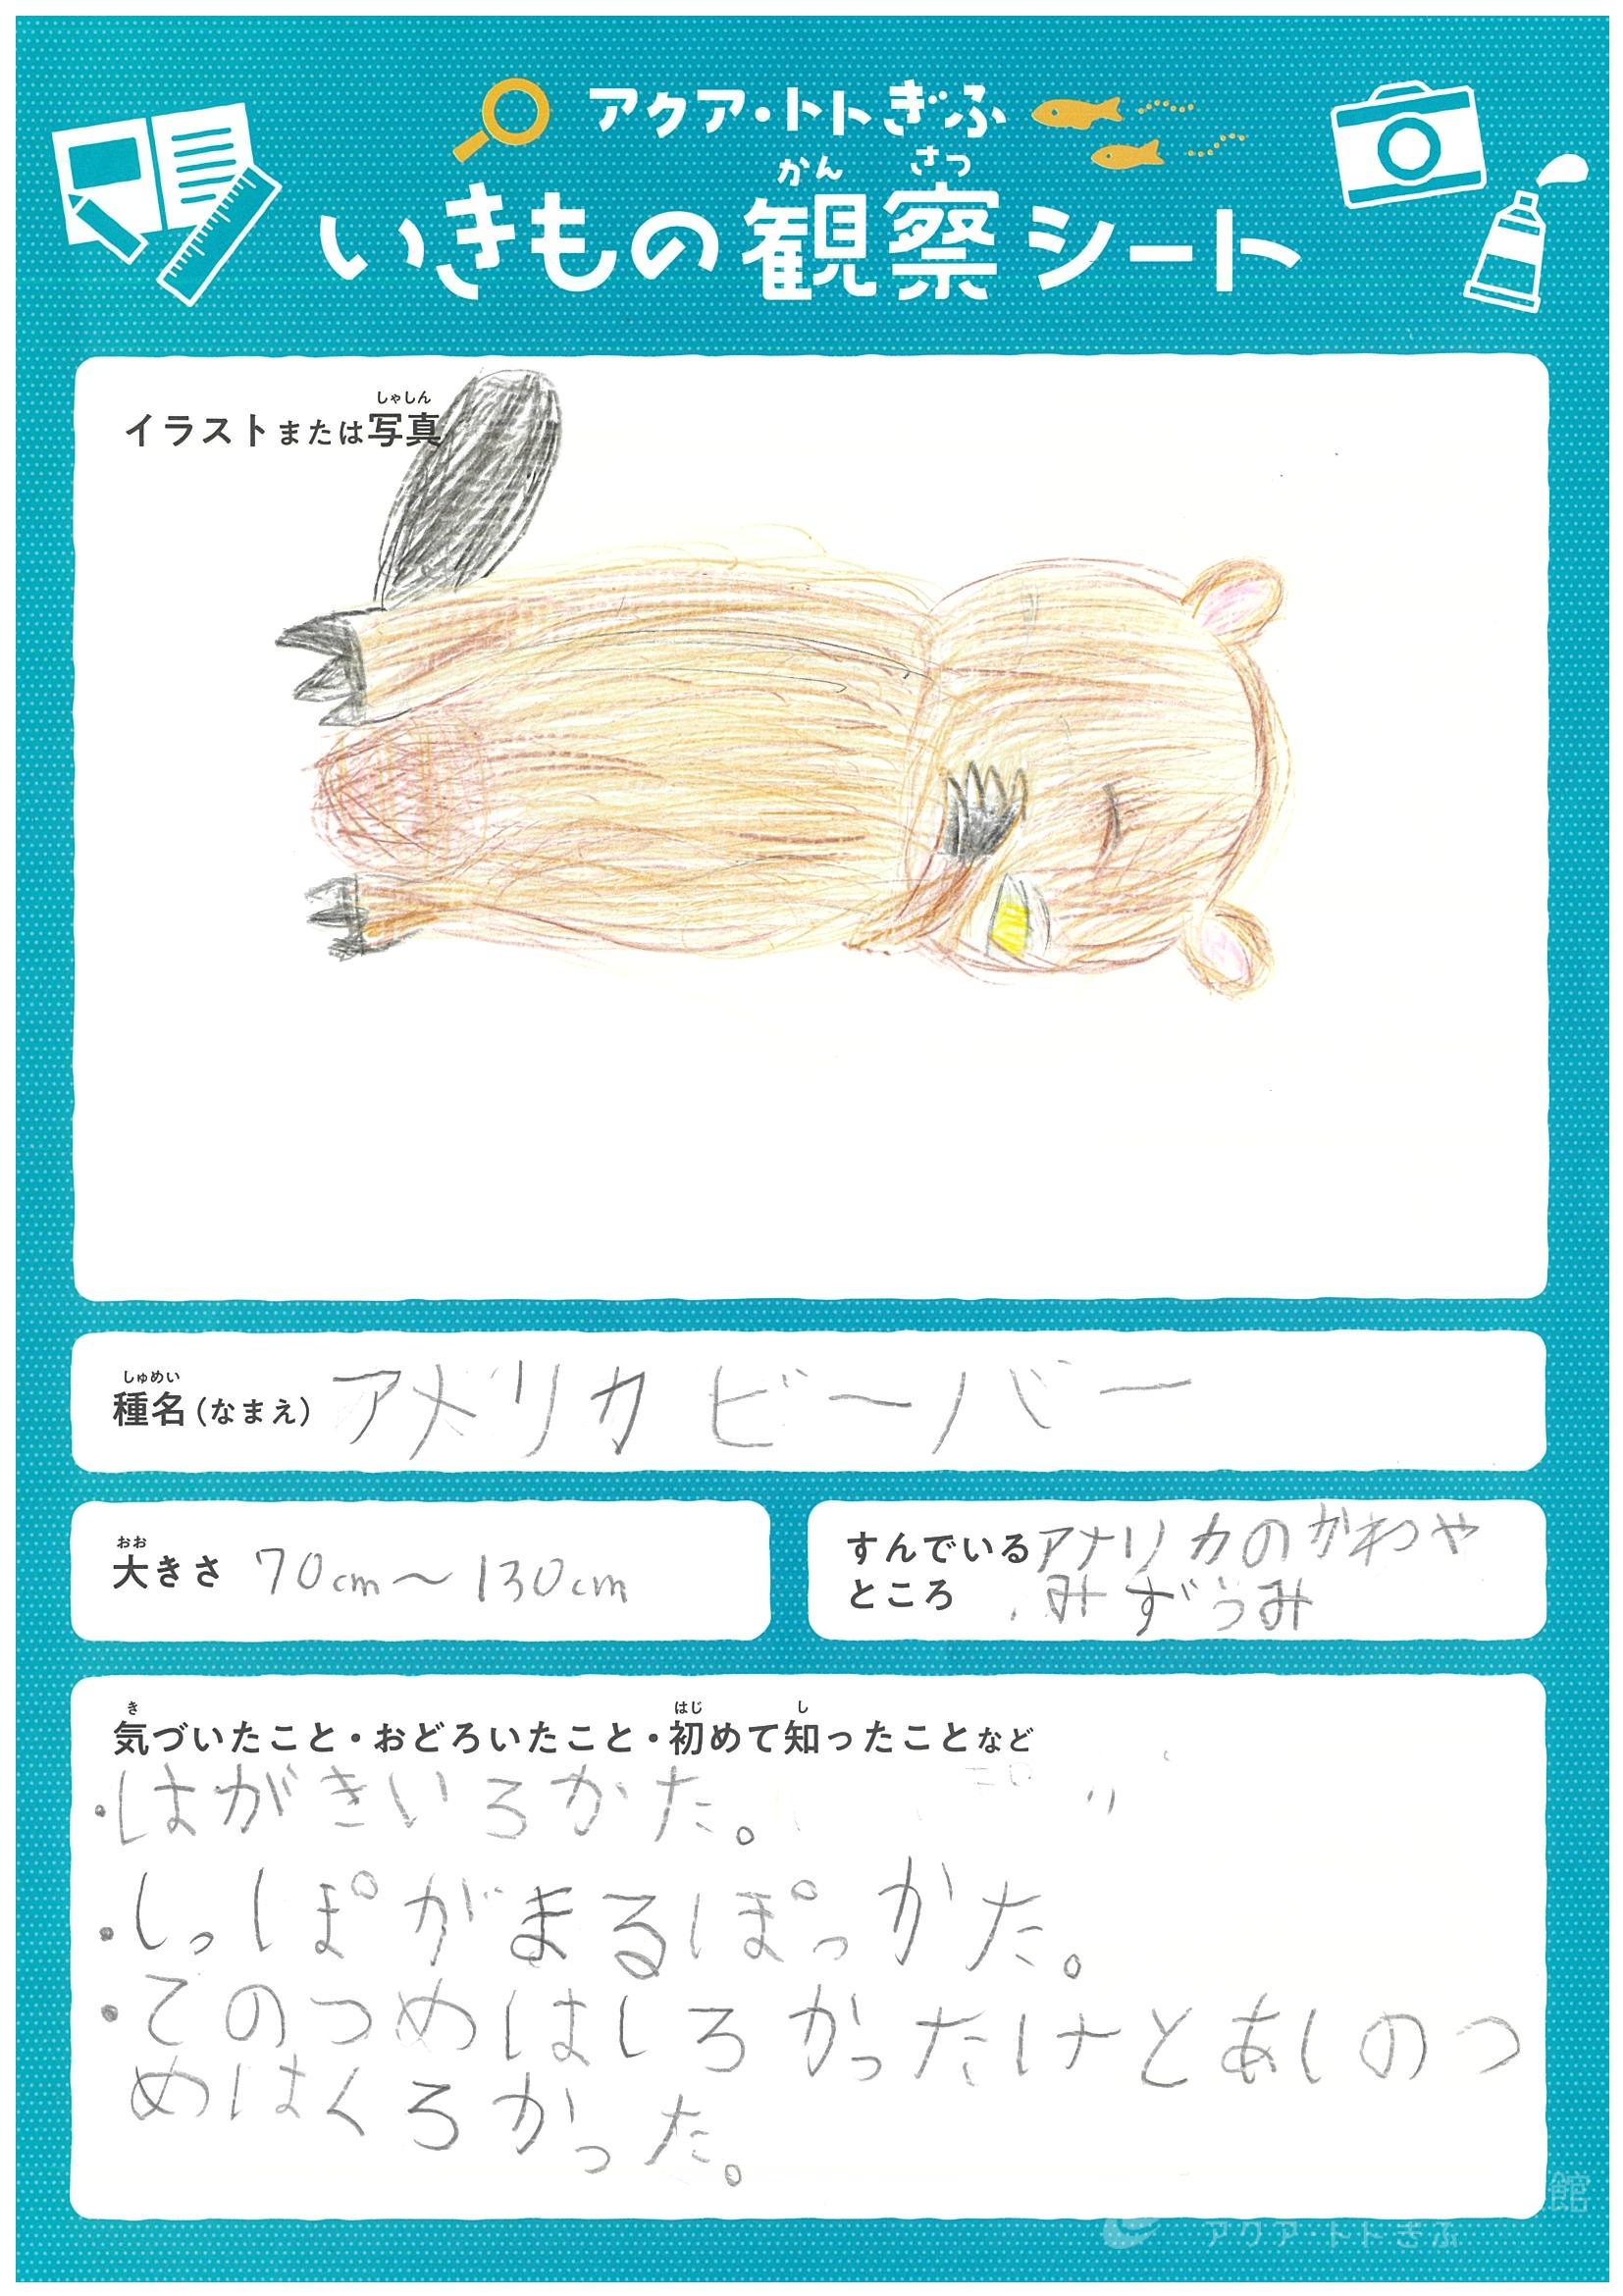 アクア・トトぎふ
かん さつ
いきもの観察シート
しゃしん
イラストまたは写真
しゅめい
種名(なまえ) アメリカビーバー
おお
大きさ 70cm〜130cm
すんでいる アメリカのかわや
ところ みずうみ
き はじ し
気づいたこと・おどろいたこと・初めて知ったことなど
・はがきいろかた。
・しっぽがまるぽっかた。
・てのつめはしろかったけとあしのつ
めはくろかった。
館
アクア・トトぎふ